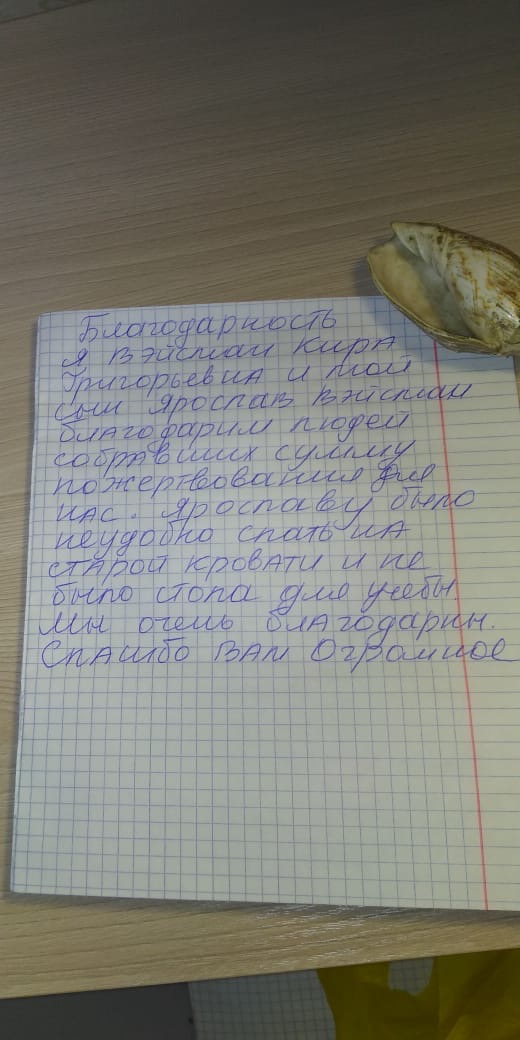 Благодарность
Я Вэйсман Кира
Григорьевна и мой
сын Ярослав Вэйсман
благодарим людей
собравших сумму
пожертвования для
нас. Ярославу было
неудобно спать на
старой кровати и не
было стола для учебы.
Мы очень благодарны.
Спасибо Вам Огромное